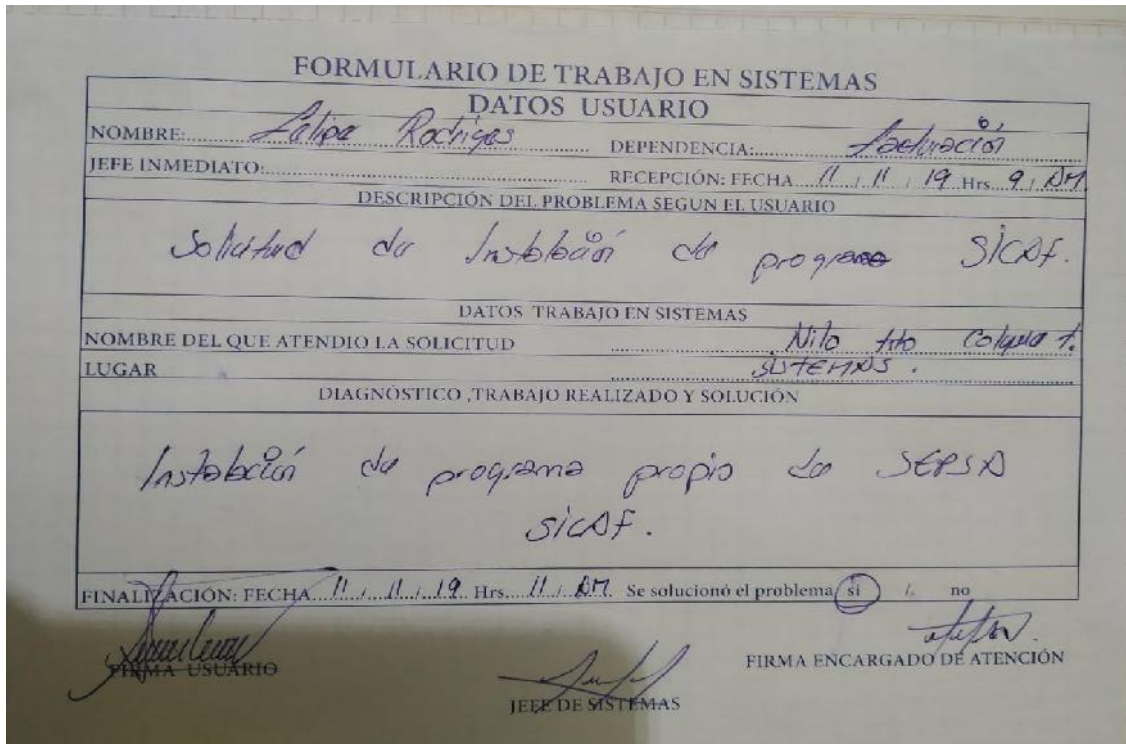 FORMULARIO DE TRABAJO EN SISTEMAS
DATOS USUARIO
NOMBRE: Rodrigas DEPENDENCIA: Facturación
JEFE INMEDIATO: RECEPCIÓN: FECHA 11 / 11 / 19 Hrs. 9 / AM
DESCRIPCIÓN DEL PROBLEMA SEGUN EL USUARIO
Solicitud de Instalación de programa SICAF.
DATOS TRABAJO EN SISTEMAS
NOMBRE DEL QUE ATENDIO LA SOLICITUD Nilo tito Colque t.
LUGAR SISTEMAS.
DIAGNÓSTICO ,TRABAJO REALIZADO Y SOLUCIÓN
Instalación de programa propio de SEPSA
SICAF.
FINALIZACIÓN: FECHA 11 / 11 / 19 Hrs. 11 / AM Se solucionó el problema si /. no
FIRMA USUARIO
FIRMA ENCARGADO DE ATENCIÓN
JEFE DE SISTEMAS